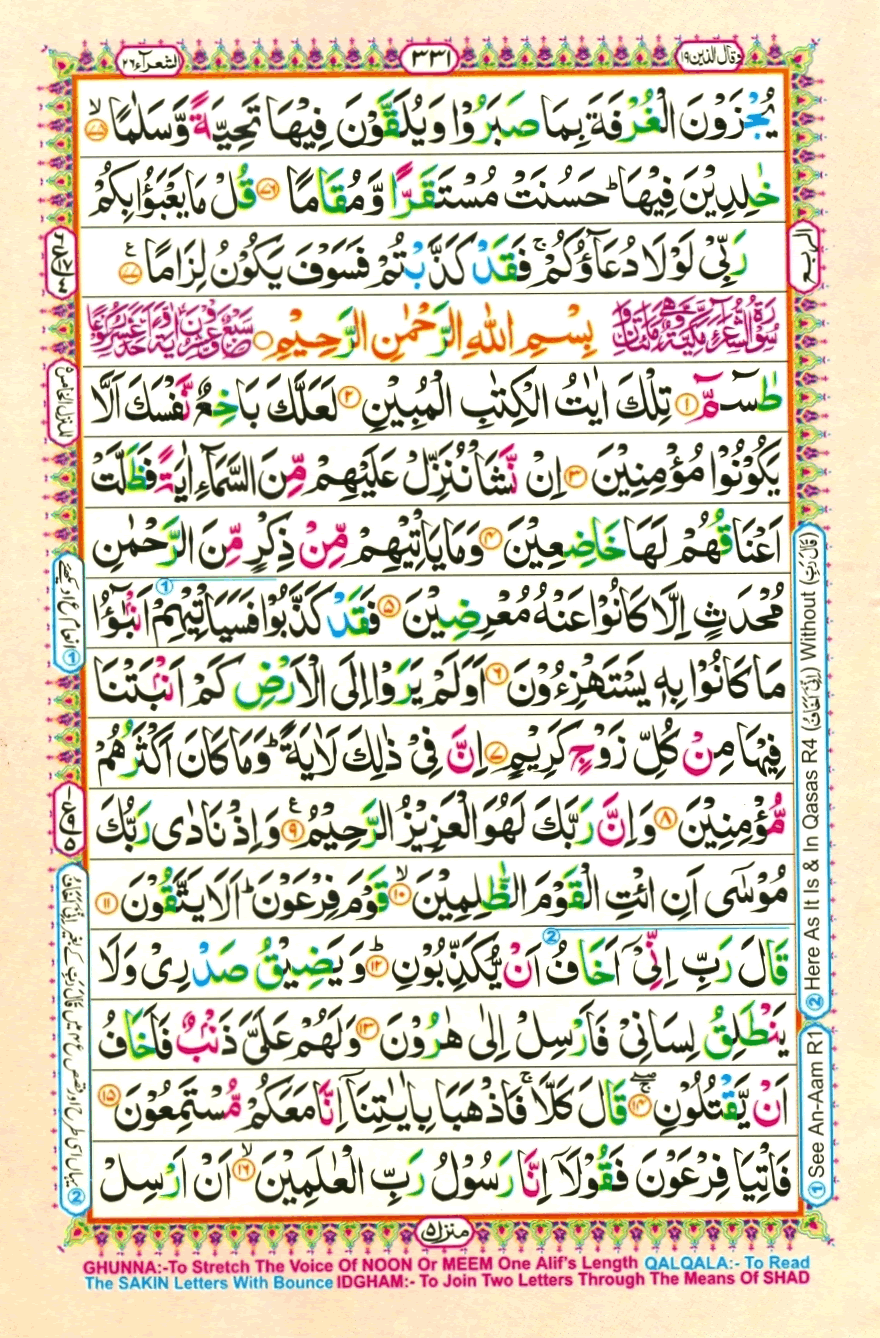 وقال الذين ١٩
٣٣١
الشعرآء ٢٦
يُجْزَوْنَ الْغُرْفَةَ بِمَا صَبَرُوْا وَيُلَقَّوْنَ فِيْهَا تَحِيَّةً وَّسَلٰمًا ۙ‏﴿۷۵﴾
خٰلِدِيْنَ فِيْهَا ؕ حَسُنَتْ مُسْتَقَرًّا وَّمُقَامًا ﴿۷۶﴾ قُلْ مَا يَعْبَؤُا بِكُمْ
رَبِّيْ لَوْلَا دُعَآؤُكُمْ ۚ فَقَدْ كَذَّبْتُمْ فَسَوْفَ يَكُوْنُ لِزَامًا ﴿۷۷﴾
بِسْمِ اللّٰهِ الرَّحْمٰنِ الرَّحِيْمِ
طٰسٓمّٓ ﴿۱﴾ تِلْكَ اٰيٰتُ الْكِتٰبِ الْمُبِيْنِ ﴿۲﴾ لَعَلَّكَ بَاخِعٌ نَّفْسَكَ اَلَّا
يَكُوْنُوْا مُؤْمِنِيْنَ ﴿۳﴾ اِنْ نَّشَاْ نُنَزِّلْ عَلَيْهِمْ مِّنَ السَّمَآءِ اٰيَةً فَظَلَّتْ
اَعْنَاقُهُمْ لَهَا خَاضِعِيْنَ ﴿۴﴾ وَمَا يَاْتِيْهِمْ مِّنْ ذِكْرٍ مِّنَ الرَّحْمٰنِ
مُحْدَثٍ اِلَّا كَانُوْا عَنْهُ مُعْرِضِيْنَ ﴿۵﴾ فَقَدْ كَذَّبُوْا فَسَيَاْتِيْهِمْ اَنْۢبٰٓؤُا
مَا كَانُوْا بِهٖ يَسْتَهْزِءُوْنَ ﴿۶﴾ اَوَلَمْ يَرَوْا اِلَى الْاَرْضِ كَمْ اَنْۢبَتْنَا
فِيْهَا مِنْ كُلِّ زَوْجٍ كَرِيْمٍ ﴿۷﴾ اِنَّ فِيْ ذٰلِكَ لَاٰيَةً ؕ وَمَا كَانَ اَكْثَرُهُمْ
مُّؤْمِنِيْنَ ﴿۸﴾ وَاِنَّ رَبَّكَ لَهُوَ الْعَزِيْزُ الرَّحِيْمُ ﴿۹﴾ وَاِذْ نَادٰى رَبُّكَ
مُوْسٰٓى اَنِ ائْتِ الْقَوْمَ الظّٰلِمِيْنَ ۙ‏﴿۱۰﴾ قَوْمَ فِرْعَوْنَ ؕ اَلَا يَتَّقُوْنَ ﴿۱۱﴾
قَالَ رَبِّ اِنِّيْٓ اَخَافُ اَنْ يُّكَذِّبُوْنِ ؕ‏﴿۱۲﴾ وَيَضِيْقُ صَدْرِيْ وَلَا
يَنْطَلِقُ لِسَانِيْ فَاَرْسِلْ اِلٰى هٰرُوْنَ ﴿۱۳﴾ وَلَهُمْ عَلَيَّ ذَنْۢبٌ فَاَخَافُ
اَنْ يَّقْتُلُوْنِ ۚ‏﴿۱۴﴾ قَالَ كَلَّا ۚ فَاذْهَبَا بِاٰيٰتِنَآ اِنَّا مَعَكُمْ مُّسْتَمِعُوْنَ ﴿۱۵﴾
فَاْتِيَا فِرْعَوْنَ فَقُوْلَآ اِنَّا رَسُوْلُ رَبِّ الْعٰلَمِيْنَ ۙ‏﴿۱۶﴾ اَنْ اَرْسِلْ
منزل ۵
① See An-Aam R1
② Here As It Is & In Qasas R4 (اِنِّيْٓ اَخَافُ) Without (قَالَ رَبِّ)
GHUNNA:-To Stretch The Voice Of NOON Or MEEM One Alif's Length QALQALA:- To Read
The SAKIN Letters With Bounce IDGHAM:- To Join Two Letters Through The Means Of SHAD